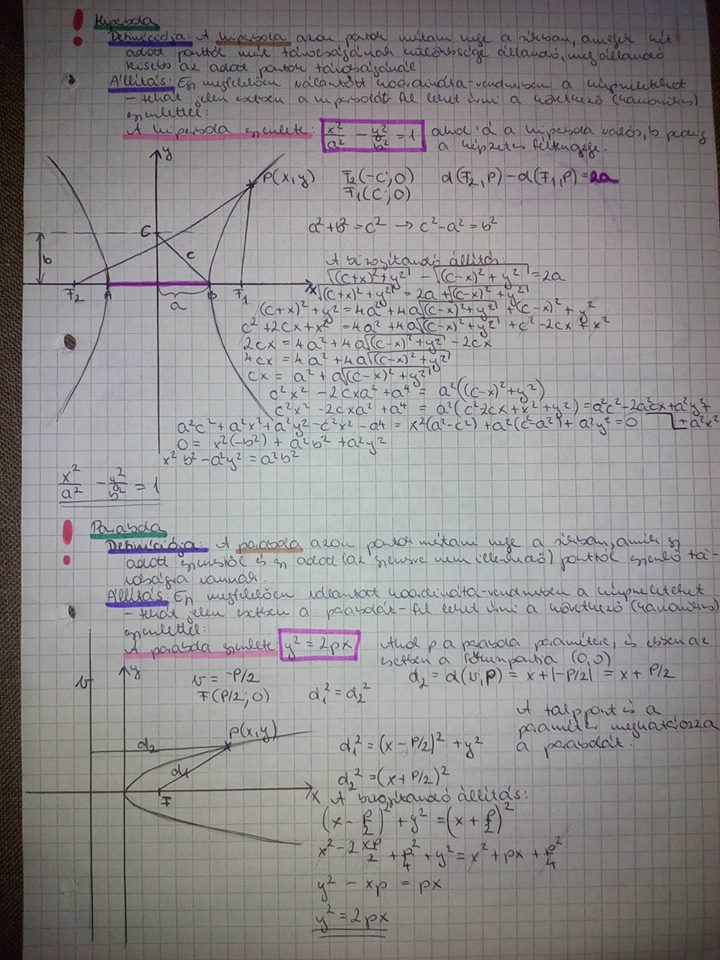 Hiperbola
Definíciója: A hiperbola azon pontok mértani helye a síkban, amelyek két
adott ponttól mért távolságának különbsége állandó, mely állandó
kisebb az adott pontok távolságánál.
Állítás: Egy megfelelően választott koordináta-rendszerben a kúpszeleteket
- tehát jelen esetben a hiperbolát fel lehet írni a következő (kanonikus)
egyenlettel:
A hiperbola egyenlete: x²/a² - y²/b² = 1 ahol a a hiperbola valós, b pedig
a képzetes féltengelye.
y
P(x,y) F₂(-c;0) d(F₂,P) - d(F₁,P) = 2a
F₁(c;0)
C
a²+b² = c² → c²-a² = b²
b c
A bizonyítandó állítás:
√((c+x)²+y²) - √((c-x)²+y²) = 2a
F₂ A B F₁ x
a
√((c+x)²+y²) = 2a + √((c-x)²+y²)
(c+x)²+y² = 4a² + 4a√((c-x)²+y²) + (c-x)² + y²
c²+2cx+x² = 4a² + 4a√((c-x)²+y²) + c² - 2cx + x²
2cx = 4a² + 4a√((c-x)²+y²) - 2cx
4cx = 4a² + 4a√((c-x)²+y²)
cx = a² + a√((c-x)²+y²)
c²x² - 2cxa² + a⁴ = a²((c-x)²+y²)
c²x² - 2cxa² + a⁴ = a²(c²-2cx+x²+y²) = a²c²-2a²cx+a²y²+
+a²x²
a²c²+a²x²+a²y²-c²x²-a⁴ = x²(a²-c²)+a²(c²-a²)+a²y² = 0
0 = x²(-b²) + a²b² + a²y²
x²b² - a²y² = a²b²
x²/a² - y²/b² = 1
Parabola
Definíciója: A parabola azon pontok mértani helye a síkban, amik egy
adott egyenestől és egy adott (az egyenesre nem illeszkedő) ponttól egyenlő tá-
volságra vannak.
Állítás: Egy megfelelően választott koordináta-rendszerben a kúpszeleteket
- tehát jelen esetben a parabolát - fel lehet írni a következő (kanonikus)
egyenlettel:
A parabola egyenlete: y² = 2px Ahol p a parabola paramétere, és ebben az
esetben a (0,0)
v y
v = -p/2
F(p/2;0) d₁² = d₂²
d₂ = d(v,P) = x + |-p/2| = x + p/2
A talppont és a
paraméter meghatározza
a parabolát.
P(x,y)
d₂
d₁
F x
d₁² = (x - p/2)² + y²
d₂² = (x + p/2)²
A bizonyítandó állítás:
(x - p/2)² + y² = (x + p/2)²
x² - 2xp/2 + p²/4 + y² = x² + px + p²/4
y² - xp = px
y² = 2px